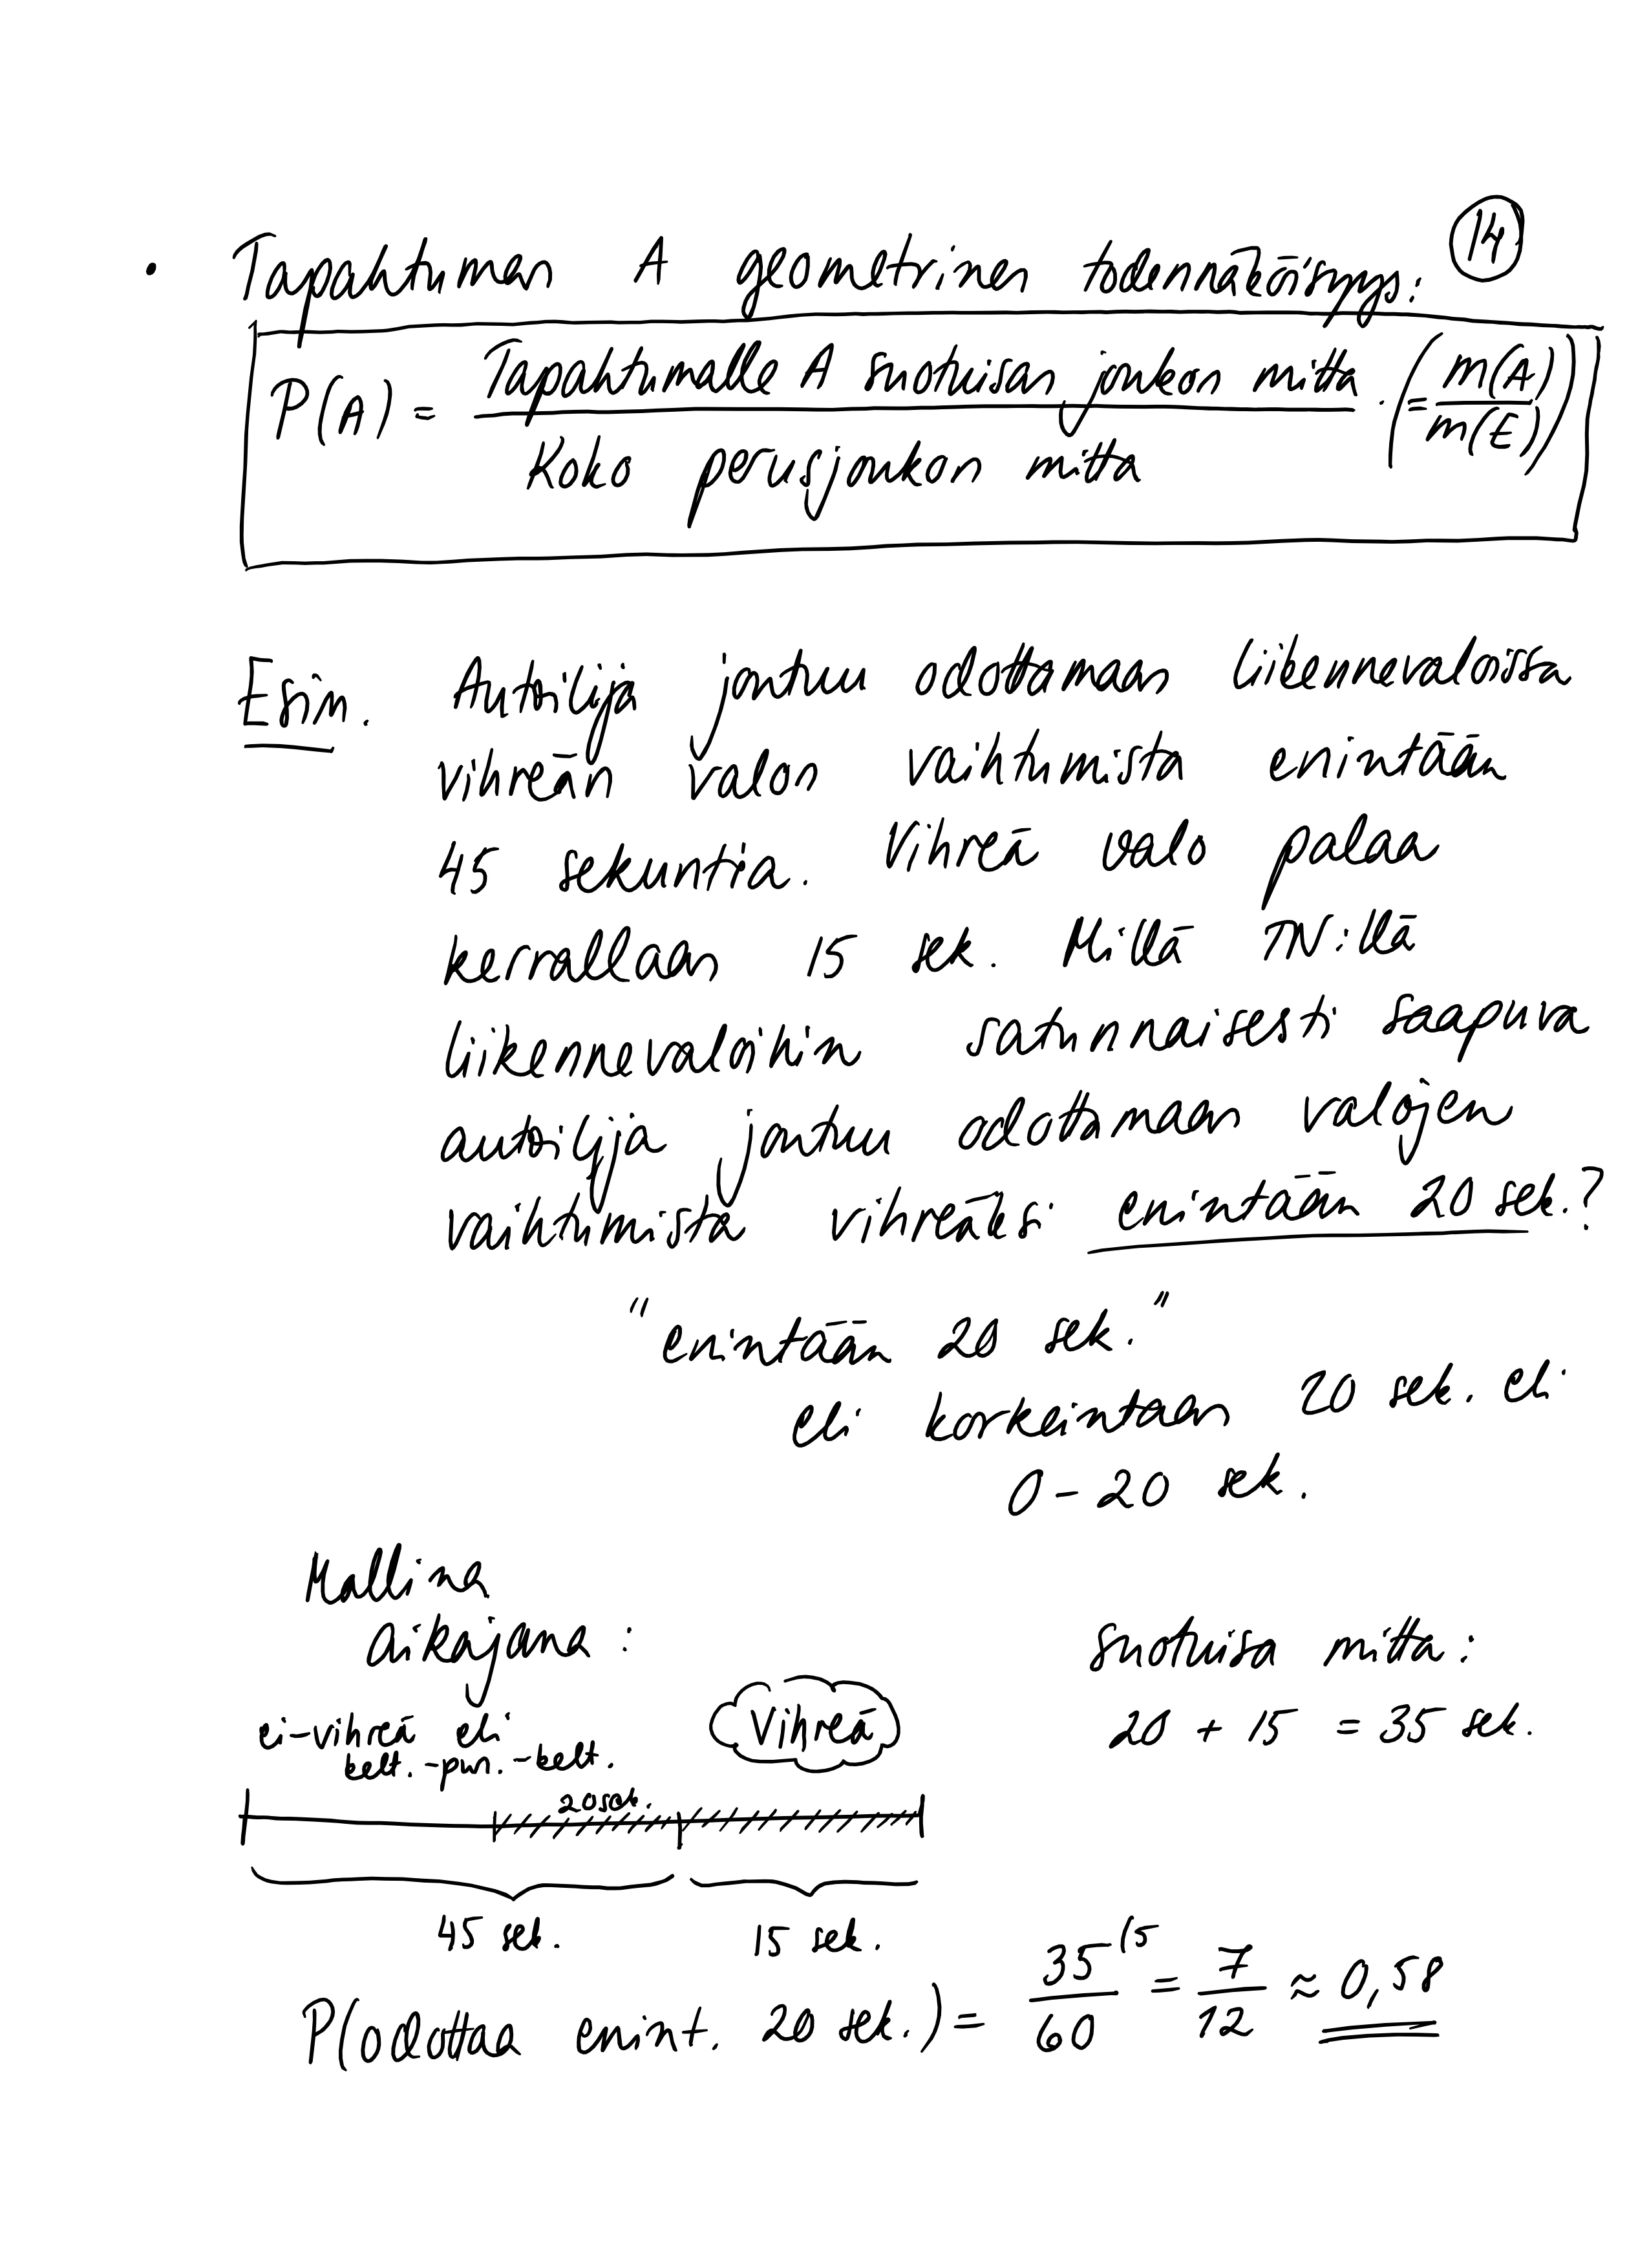 14
• Tapahtuman A geometrinen todennäköisyys:
P(A) = Tapahtumalle A suotuisan joukon mitta / Koko perusjoukon mitta . (= m(A) / m(E))
Esim. Autoilija joutuu odottamaan liikennevaloissa
vihreän valon vaihtumista enintään
45 sekuntia. Vihreä valo palaa
kerrallaan 15 sek. Millä TN:llä
liikennevaloihin satunnaisesti saapuva
autoilija joutuu odottamaan valojen
vaihtumista vihreäksi enintään 20 sek.?
"enintään 20 sek."
eli korkeintaan 20 sek. eli
0-20 sek.
Mallina
aikajana:
suotuisa mitta:
20 + 15 = 35 sek.
ei-vihreä eli
kelt.-pun.-kelt.
Vihreä
20 sek.
45 sek.
15 sek.
P(odottaa enint. 20 sek.) = 35/60 (5 = 7/12 ≈ 0,58